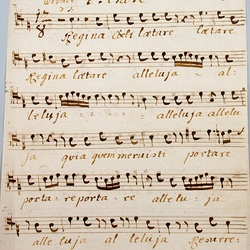 Regina Celi lætare lætare.
Regina lætare alleluja al:
leluja alleluja allelu
ja quia quem meruisti portare
porta: reporta: re alle lu: ja
alle luja al leluja Resurre: